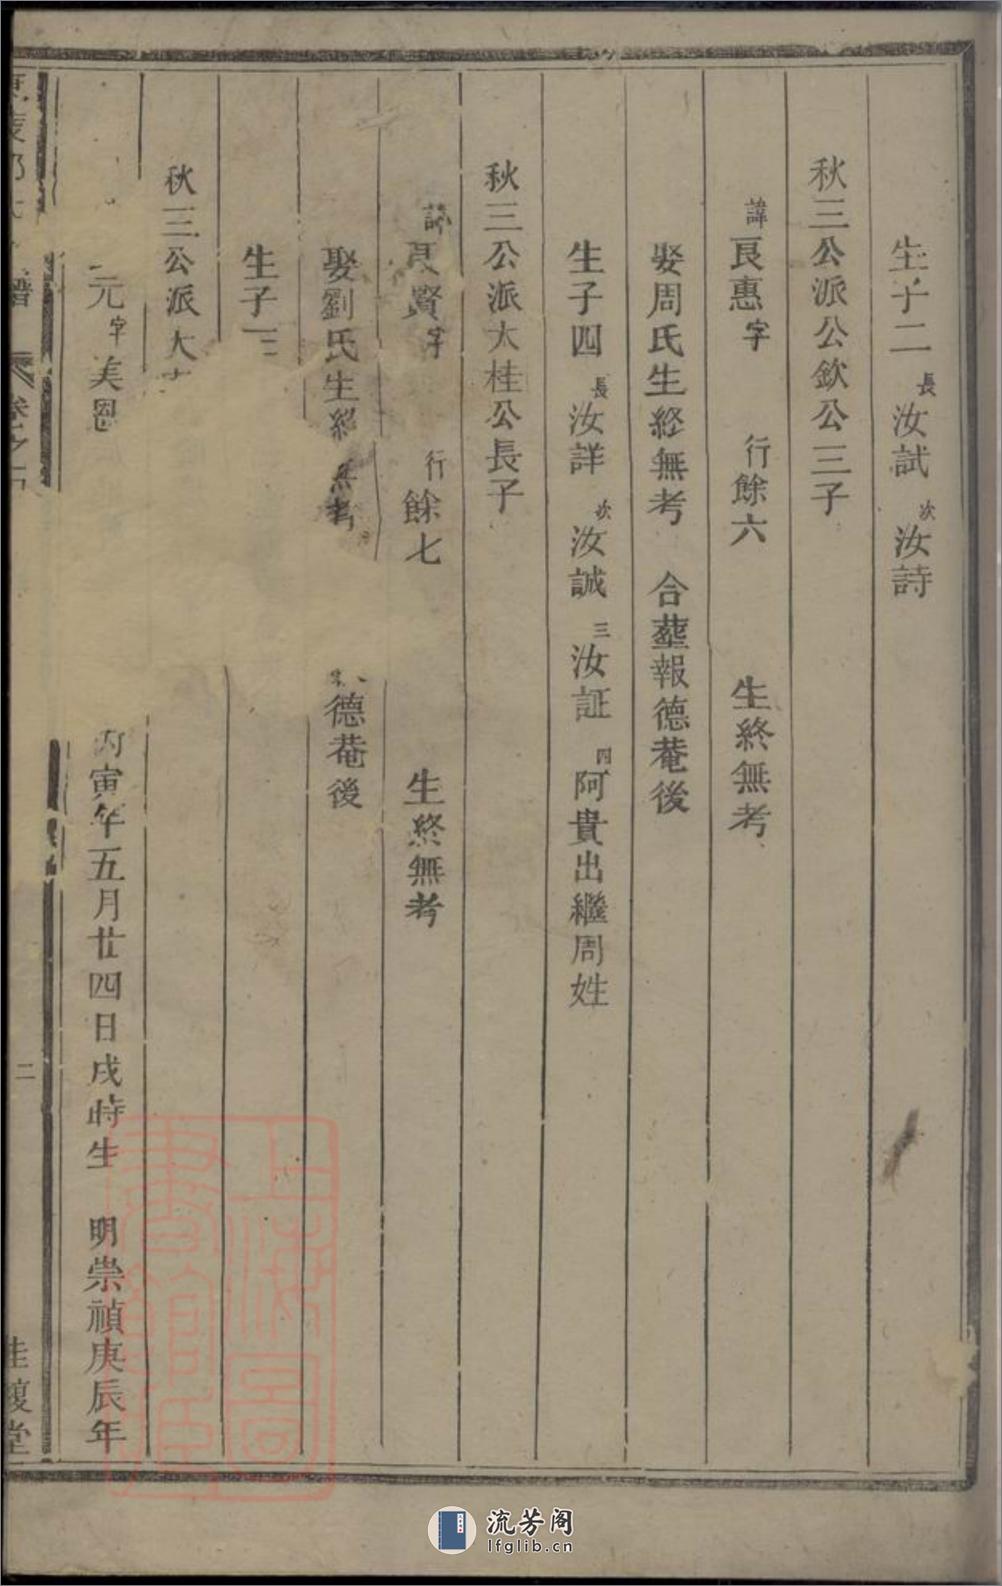 生子二 長汝試 次汝詩
秋三公派公欽公三子
諱良惠字 行餘六 生終無考
娶周氏生終無考 合塟報德菴後
生子四 長汝詳 次汝誠 三汝証 四阿貴出繼周姓
秋三公派大桂公長子
諱良賢字 行餘七 生終無考
娶劉氏生終無考 德菴後
生子
秋三公派大
元字美恩 丙寅年五月廿四日戌時生 明崇禎庚辰年
譜 卷之 二 桂馥堂
上海圖書館藏
流芳阁
lfglib.cn